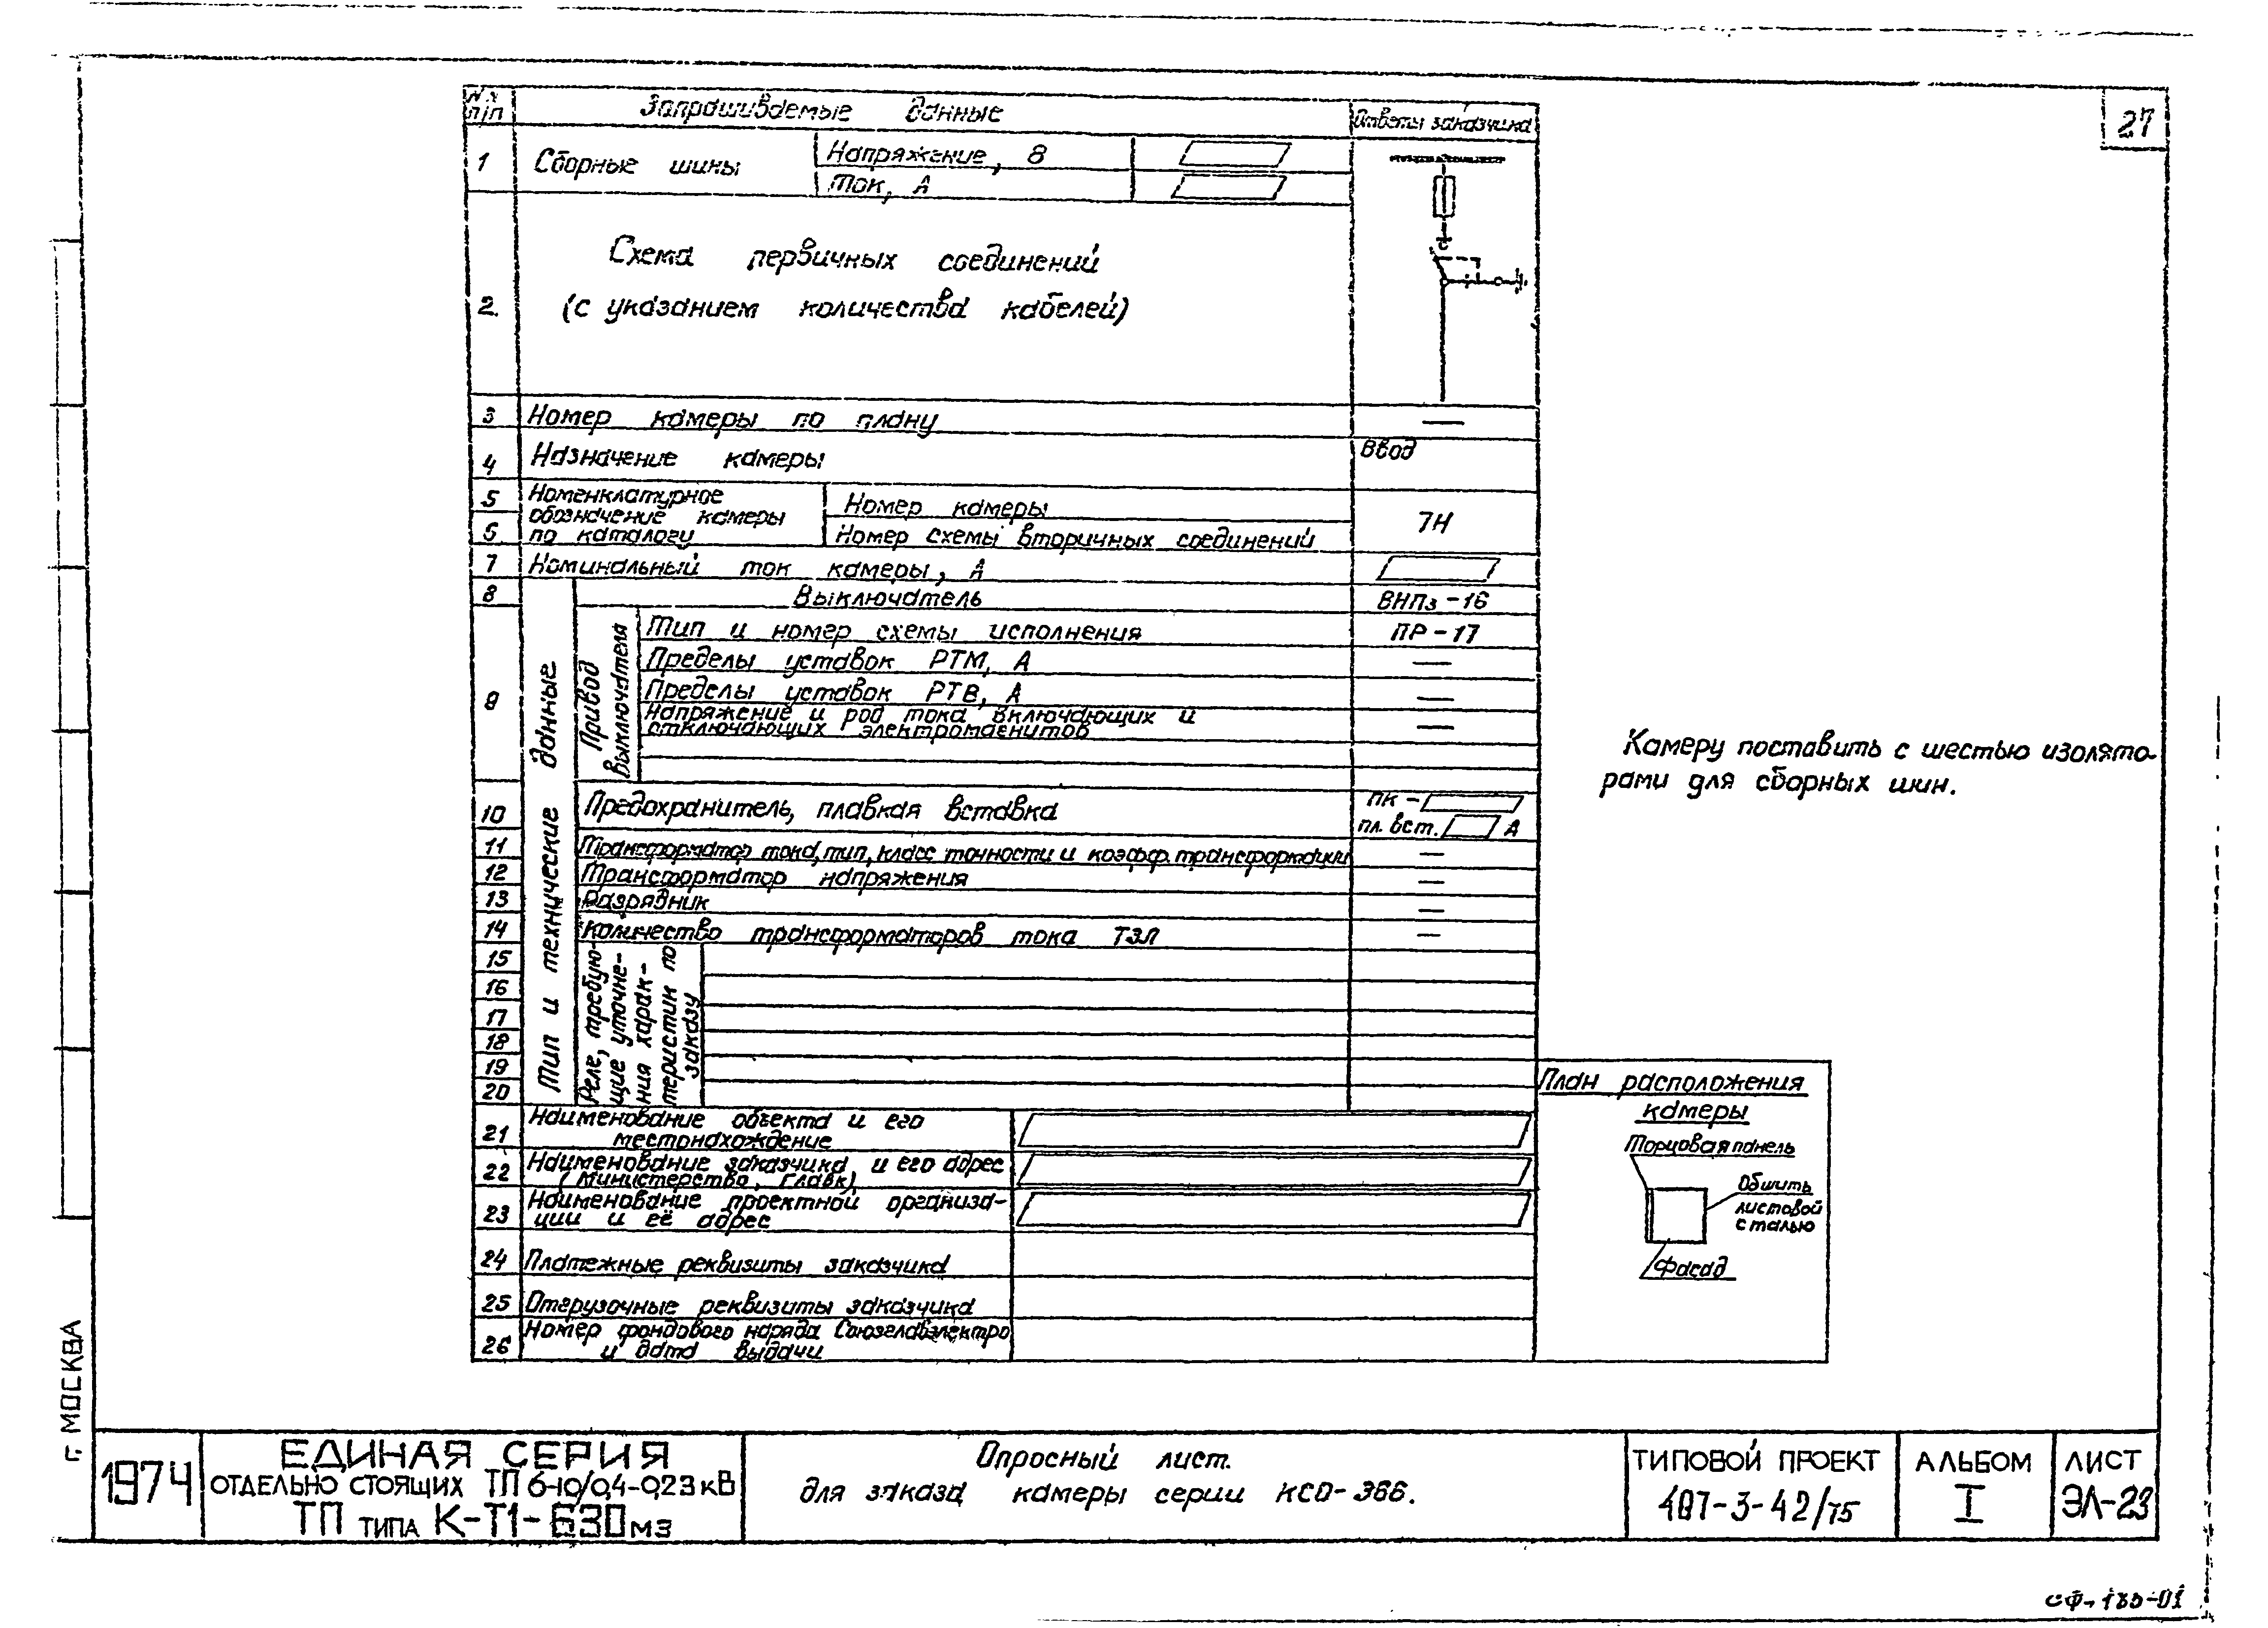 27
№№ п/п
Запрашиваемые данные
Ответы заказчика
1 Сборные шины
Напряжение, В
Ток, А
2. Схема первичных соединений
(с указанием количества кабелей)
3 Номер камеры по плану —
4 Назначение камеры Ввод
5 Номенклатурное
обозначение камеры
6 по каталогу
Номер камеры
Номер схемы вторичных соединений
7Н
7 Номинальный ток камеры, А
Тип и технические данные
8 Выключатель ВНПз-16
9 Привод
выключателя
Тип и номер схемы исполнения ПР-17
Пределы уставок РТМ, А —
Пределы уставок РТВ, А —
Напряжение и род тока включающих и
отключающих электромагнитов —
10 Предохранитель, плавкая вставка
ПК-
пл. вст. А
11 Трансформатор тока, тип, класс точности и коэфф. трансформации —
12 Трансформатор напряжения —
13 Разрядник —
14 Количество трансформаторов тока ТЗЛ —
15
16
17
18
19
20
Реле, требую-
щие уточне-
ния харак-
теристик по
заказу
21 Наименование объекта и его
местонахождение
22 Наименование заказчика и его адрес
(министерство, главк)
23 Наименование проектной организа-
ции и её адрес
24 Платежные реквизиты заказчика
25 Отгрузочные реквизиты заказчика
26 Номер фондового наряда Союзглавэлектро
и дата выдачи
Камеру поставить с шестью изолято-
рами для сборных шин.
План расположения
камеры
Торцовая панель
Обшить
листовой
сталью
Фасад
г. МОСКВА
1974
ЕДИНАЯ СЕРИЯ
ОТДЕЛЬНО СТОЯЩИХ ТП 6-10/0,4-0,23 кВ
ТП ТИПА К-Т1-630 мз
Опросный лист.
для заказа камеры серии КСО-366.
ТИПОВОЙ ПРОЕКТ
407-3-42/75
АЛЬБОМ
I
ЛИСТ
ЭЛ-23